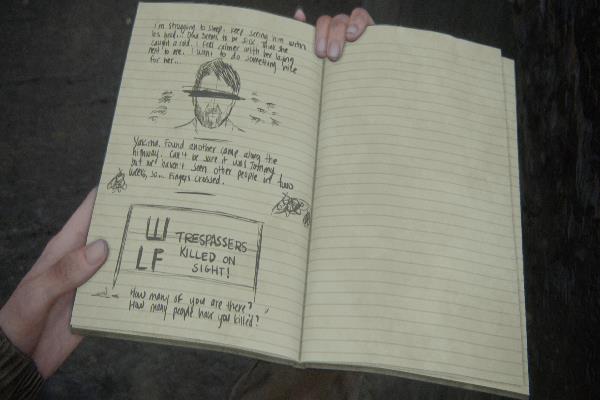 I'm struggling to sleep. Keep seeing him with
his head... Dina seems to be sick. Think she
caught a cold. I feel calmer with her laying
next to me. I want to do something nice
for her...
Yakima. Found another camp along the
highway. Can't be sure it was Tommy,
but we haven't seen other people in two
weeks, so... Fingers crossed.
W
LF
TRESPASSERS
KILLED ON
SIGHT!
How many of you are there?
How many people have you killed?